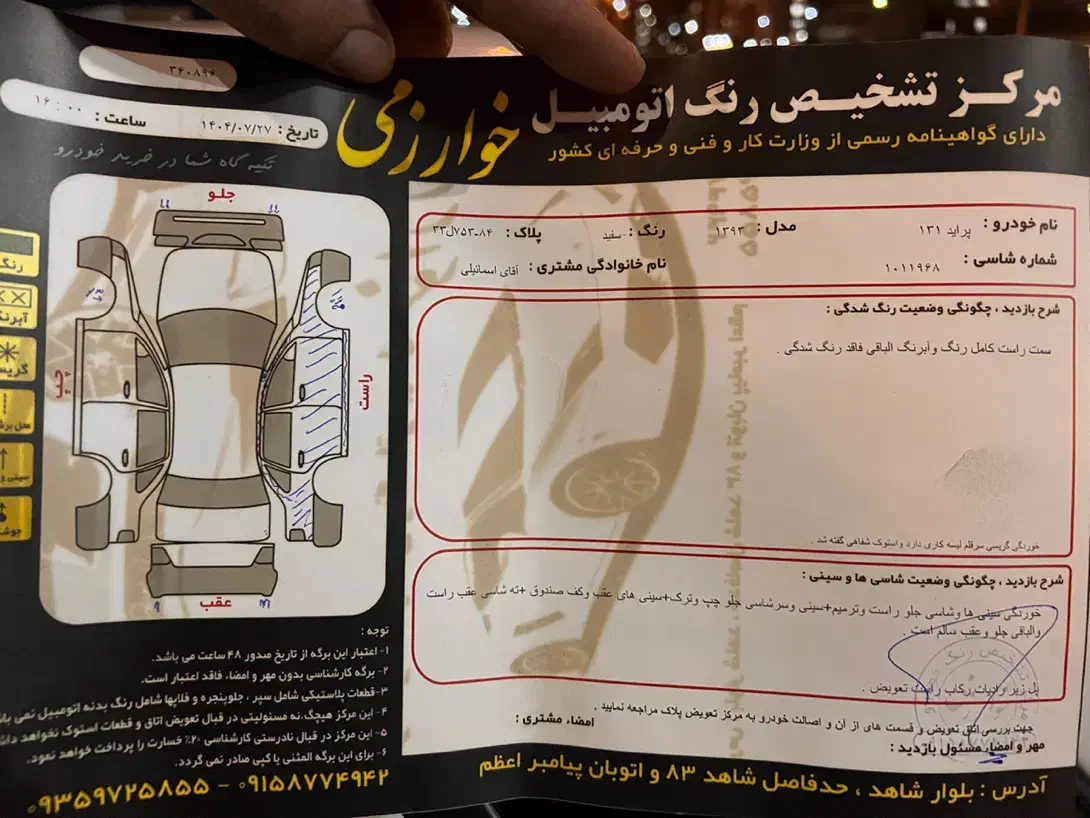 مرکز تشخیص رنگ اتومبیل
خوارزمی
دارای گواهینامه رسمی از وزارت کار و فنی و حرفه ای کشور
۳۴۰۸۹۶
تاریخ : ۱۴۰۴/۰۷/۲۷
ساعت : ۱۶:۰۰
تکیه گاه شما در خرید خودرو
نام خودرو : پراید ۱۳۱
مدل : ۱۳۹۳
رنگ : سفید
پلاک : ۸۴-۷۵۳ل۳۳
شماره شاسی : ۱۰۱۱۹۶۸
نام خانوادگی مشتری : آقای اسمائیلی
شرح بازدید ، چگونگی وضعیت رنگ شدگی :
سمت راست کامل رنگ وآبرنگ الباقی فاقد رنگ شدگی .
خوردگی گریسی سرقلم لیسه کاری دارد واستوک شفاهی گفته شد .
شرح بازدید ، چگونگی وضعیت شاسی ها و سینی :
خوردگی سینی ها وشاسی جلو راست وترمیم+سینی وسرشاسی جلو چپ وترک+سینی های عقب وکف صندوق +ته شاسی عقب راست
والباقی جلو وعقب سالم است .
پل زیر رادیات رکاب راست تعویض .
جهت بررسی اتاق تعویض و قسمت های از آن و اصالت خودرو به مرکز تعویض پلاک مراجعه نمایید .
مهر و امضاء مسئول بازدید :
امضاء مشتری :
جلو
چپ
راست
عقب
رنگ
آبرنگ
توجه :
۱- اعتبار این برگه از تاریخ صدور ۴۸ ساعت می باشد.
۲- برگه کارشناسی بدون مهر و امضاء، فاقد اعتبار است.
۳-قطعات پلاستیکی شامل سپر ، جلوپنجره و فلاپها شامل رنگ بدنه اتومبیل نمی
۴- این مرکز هیچگ.نه مسئولیتی در قبال تعویض اتاق و قطعات استوک نخواهد
۵- این مرکز در قبال نادرستی کارشناسی ۲۰٪ خسارت را پرداخت خواهد نمود.
۶- برای این برگه المثنی یا کپی صادر نمی گردد.
۰۹۳۵۹۷۲۵۸۵۵ - ۰۹۱۵۸۷۷۴۹۴۲
آدرس : بلوار شاهد ، حدفاصل شاهد ۸۳ و اتوبان پیامبر اعظم